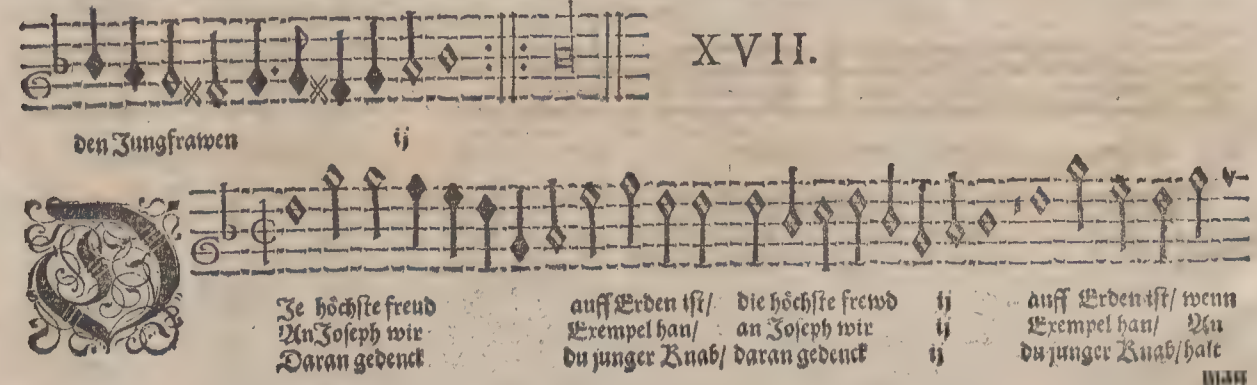 XVII.
den Jungfrawen ij
DJe höchste freud auff Erden ist/ die höchste frewd ij auff Erden ist/ wenn
An Joseph wir Exempel han/ an Joseph wir ij Exempel han/ An
Daran gedenck du junger Knab/ daran gedenck ij du junger Knab/ halt
man